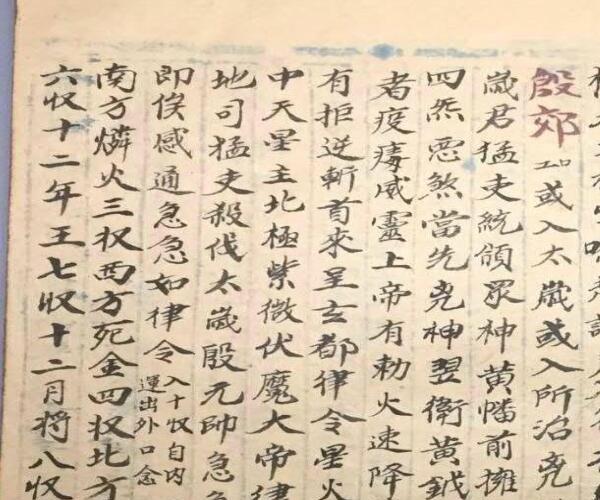 殷郊 或入太歲或入所治尭
歲君猛吏統領眾神黃幡前擁
四炁惡煞當先尭神翌衛黃鉞
者疫癘威靈上帝有勑火速降
有拒逆斬首來呈玄都律令星火
中天星主北極紫微伏魔大帝律
地司猛吏殺伐太歲殷元帥急
即俟感通急急如律令
入十収自内
運出外口念
南方燐火三収西方死金四収北方
六収十二年王七収十二月将八収